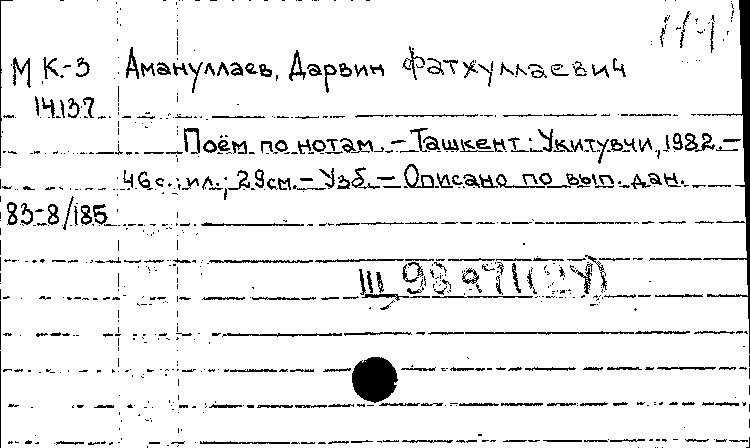 М К.-3 Амануллаев, Дарвин Фатхуллаевич
14137
Поём по нотам. – Ташкент: Укитувчи, 1982. –
46 с.: ил.; 29см. – Узб. – Описано по вып. дан.
83-8/185
III 98971(24)